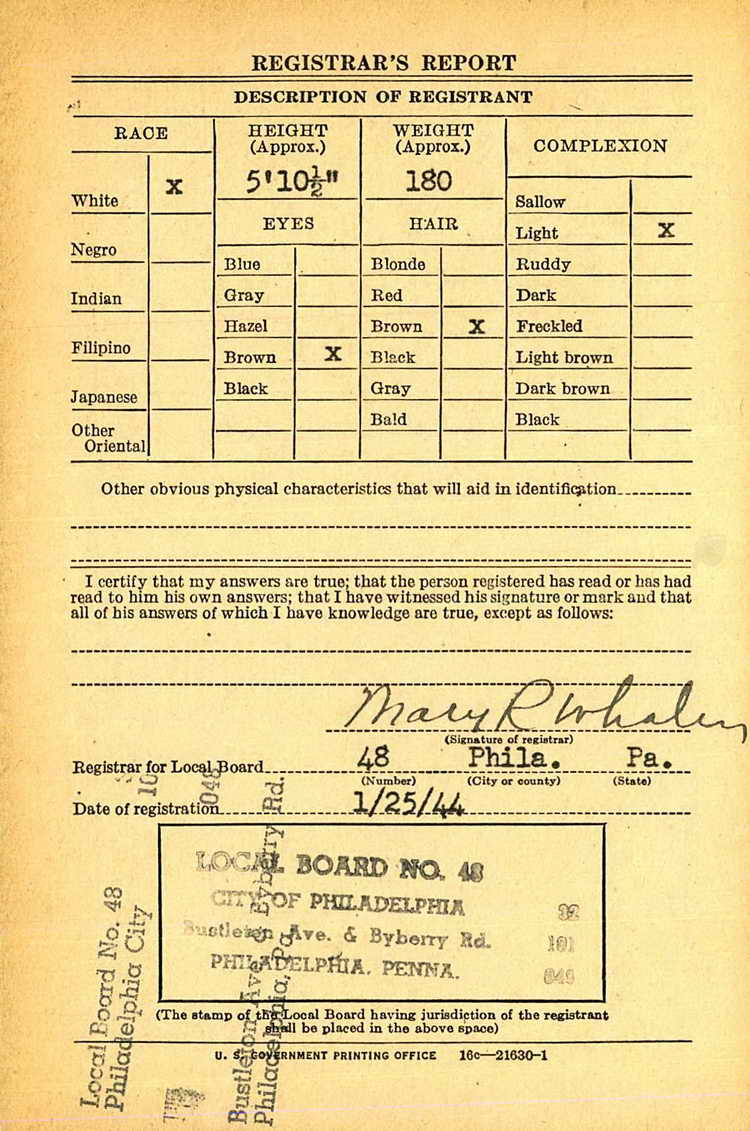 REGISTRAR'S REPORT
DESCRIPTION OF REGISTRANT
RACE
HEIGHT
(Approx.)
WEIGHT
(Approx.)
COMPLEXION
White X
5'10½"
180
Sallow
EYES
HAIR
Light X
Negro
Blue
Blonde
Ruddy
Indian
Gray
Red
Dark
Hazel
Brown X
Freckled
Filipino
Brown X
Black
Light brown
Japanese
Black
Gray
Dark brown
Other
Oriental
Bald
Black
Other obvious physical characteristics that will aid in identification
I certify that my answers are true; that the person registered has read or has had
read to him his own answers; that I have witnessed his signature or mark and that
all of his answers of which I have knowledge are true, except as follows:
Mary R Whalen
(Signature of registrar)
Registrar for Local Board 48 Phila. Pa.
(Number) (City or county) (State)
Date of registration 1/25/44
LOCAL BOARD NO. 48
CITY OF PHILADELPHIA 32
Bustleton Ave. & Byberry Rd. 101
PHILADELPHIA, PENNA. 048
(The stamp of the Local Board having jurisdiction of the registrant
shall be placed in the above space)
U. S. GOVERNMENT PRINTING OFFICE 16c—21630-1
Local Board No. 48
Philadelphia City
Bustleton Ave. & Byberry Rd.
Philadelphia, Pa.
048